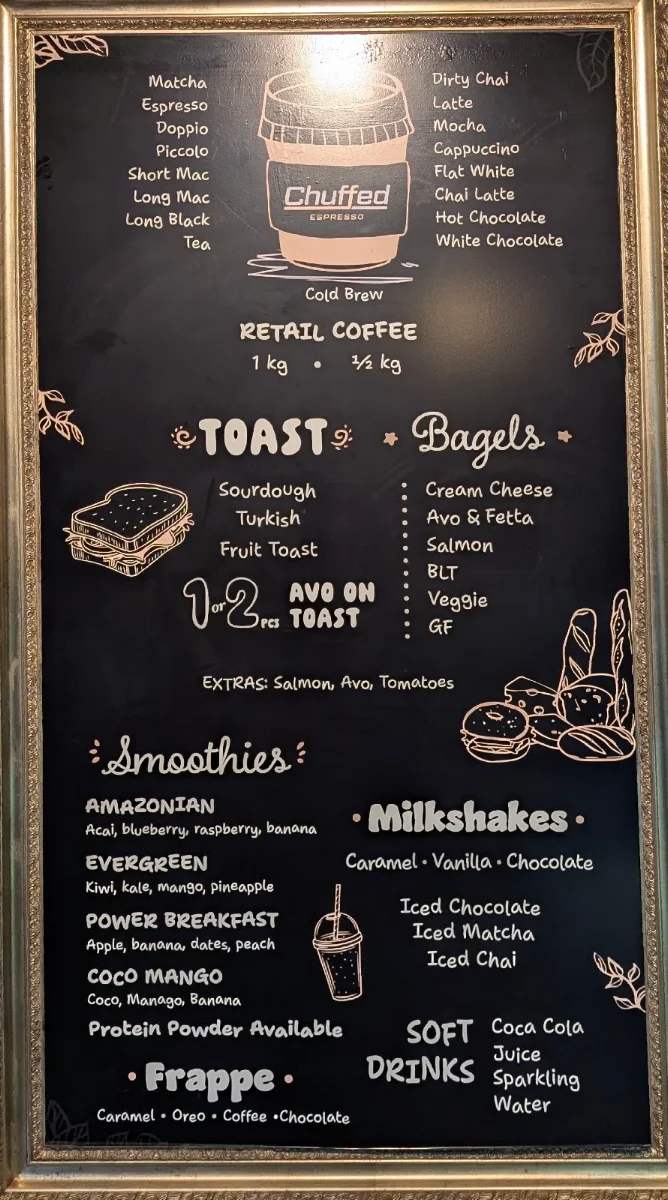 Matcha
Espresso
Doppio
Piccolo
Short Mac
Long Mac
Long Black
Tea
Chuffed
ESPRESSO
Dirty Chai
Latte
Mocha
Cappuccino
Flat White
Chai Latte
Hot Chocolate
White Chocolate
Cold Brew
RETAIL COFFEE
1 kg • ½ kg
TOAST
Sourdough
Turkish
Fruit Toast
1 or 2 pcs AVO ON TOAST
Bagels
Cream Cheese
Avo & Fetta
Salmon
BLT
Veggie
GF
EXTRAS: Salmon, Avo, Tomatoes
Smoothies
AMAZONIAN
Acai, blueberry, raspberry, banana
EVERGREEN
Kiwi, kale, mango, pineapple
POWER BREAKFAST
Apple, banana, dates, peach
COCO MANGO
Coco, Manago, Banana
Protein Powder Available
• Frappe •
Caramel • Oreo • Coffee • Chocolate
• Milkshakes •
Caramel • Vanilla • Chocolate
Iced Chocolate
Iced Matcha
Iced Chai
SOFT
DRINKS
Coca Cola
Juice
Sparkling
Water